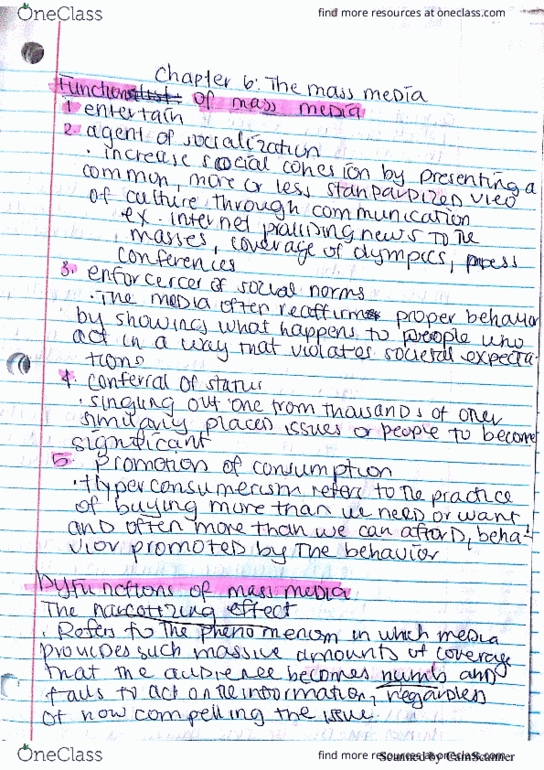 OneClass
find more resources at oneclass.com
Chapter 6: The mass media
Functions of mass media
1 entertain
2 agent of socialization
• increase social cohesion by presenting a
common, more or less standardized view
of culture through communication
ex. internet providing news to the
masses, coverage of olympics, press
conferences
3. enforcer of social norms
• The media often reaffirms proper behavior
by showing what happens to people who
act in a way that violates societal expecta-
tions
4. conferral of status
• singling out one from thousands of other
similarly placed issues or people to become
significant
5. promotion of consumption
• Hyperconsumerism refers to the practice
of buying more than we need or want
and often more than we can afford, beha-
vior promoted by the behavior
Dyfunctions of mass media
The narcotizing effect
. Refers to the phenomenom in which media
provides such massive amounts of coverage
that the audience becomes numb and
fails to act on the information, regardless
of how compelling the issue.
OneClass
find more resources at oneclass.com
Scanned by CamScanner